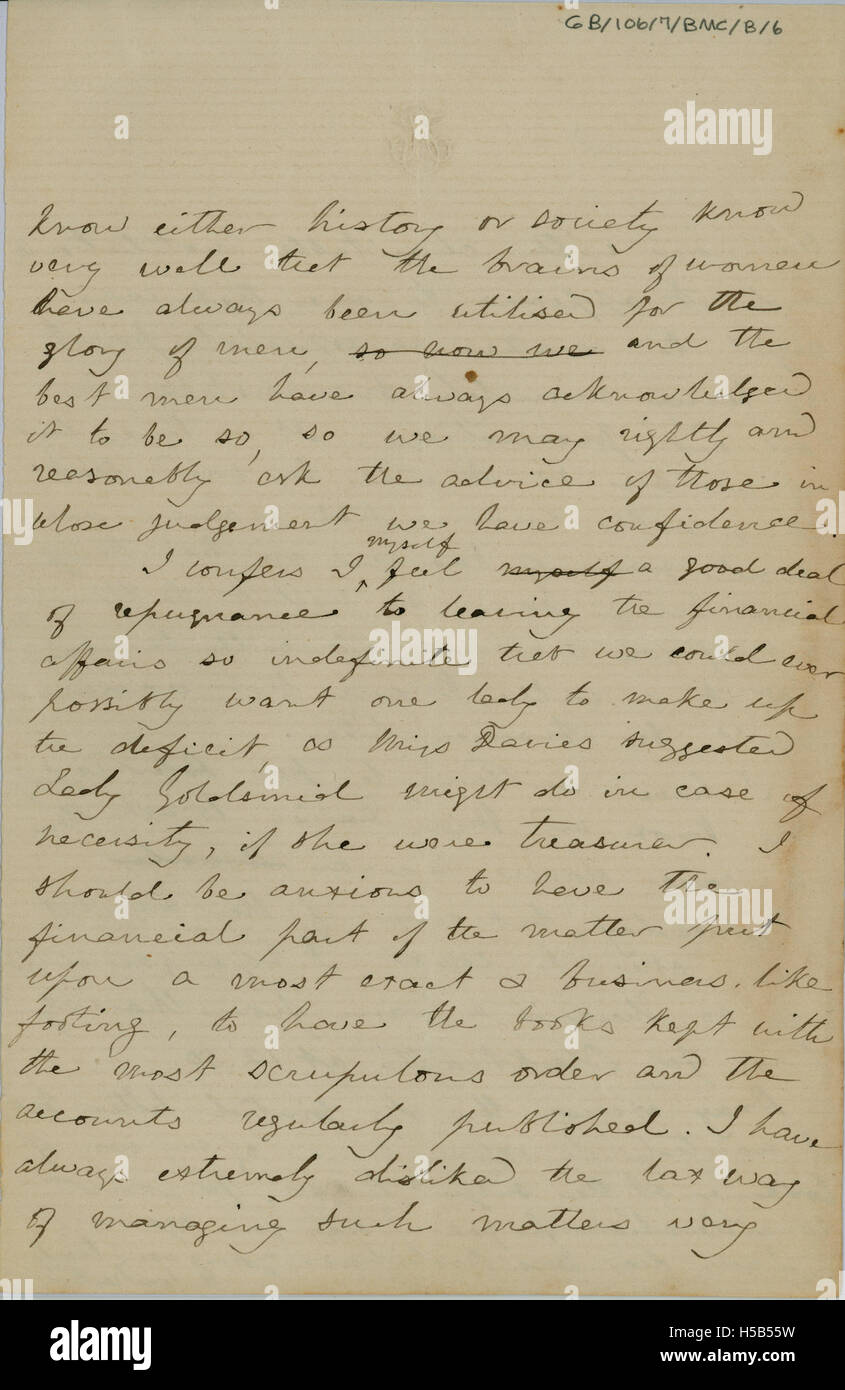 GB/106/7/BMC/B/6
know either history or society know
very well that the brains of women
have always been utilised for the
glory of men, ~~so now we~~ and the
best men have always acknowledged
it to be so, so we may rightly and
reasonably ask the advice of those in
whose judgement we have confidence.
I confess I ^myself feel ~~myself~~ a good deal
of repugnance to leaving the financial
affairs so indefinite that we could ever
possibly want one lady to make up
the deficit, as Miss Davies suggested
Lady Goldsmid might do in case of
necessity, if she were treasurer. I
should be anxious to have the
financial part of the matter put
upon a most exact & business-like
footing, to have the books kept with
the most scrupulous order and the
accounts regularly published. I have
always extremely disliked the lax way
of managing such matters very
a
alamy
alamy
H5B55W
www.alamy.com